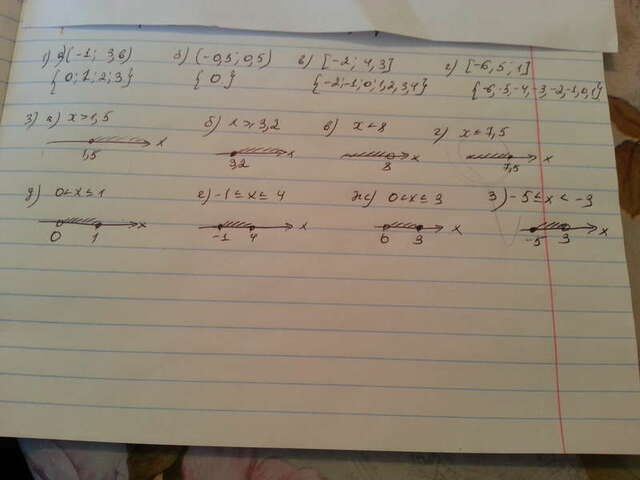 1) а) (-1; 3,6) б) (-0,5; 0,5) в) [-2; 4,3] г) [-6,5; 1]
{0; 1; 2; 3} {0} {-2; -1; 0; 1,2,3,4} {-6,-5,-4,-3,-2,-1,0,1}
3) а) x > 1,5 б) x ≥ 3,2 в) x < 8 г) x ≤ 7,5
1,5 x 3,2 x 8 x 7,5 x
д) 0 < x ≤ 1 е) -1 ≤ x ≤ 4 ж) 0 < x ≤ 3 з) -5 ≤ x < -3
0 1 x -1 4 x 0 3 x -5 3 x